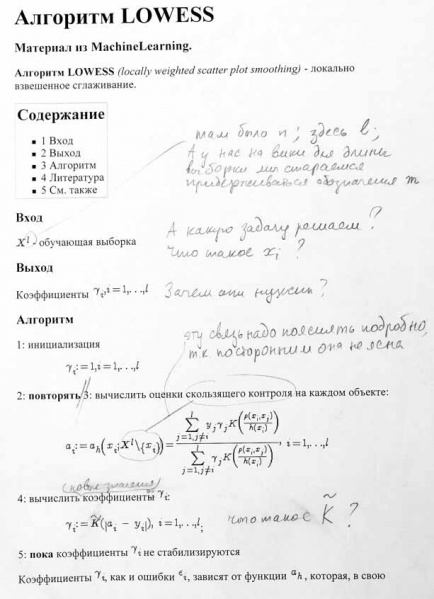 Алгоритм LOWESS
Материал из MachineLearning.
Алгоритм LOWESS (locally weighted scatter plot smoothing) - локально
взвешенное сглаживание.
Содержание
1 Вход
2 Выход
3 Алгоритм
4 Литература
5 См. также
там было n; здесь l;
А у нас на вики для длины
выборки мы стараемся
придерживаться обозначения m
Вход
X^l - обучающая выборка
А какую задачу решаем?
Что такое x_i?
Выход
Коэффициенты γ_i, i = 1,…,l
Зачем они нужны?
Алгоритм
эту связь надо пояснять подробно,
т.к. посторонним она не ясна
1: инициализация
γ_i := 1, i = 1,…,l
2: повторять 3: вычислить оценки скользящего контроля на каждом объекте:
a_i := a_h(x_i; X^l\{x_i}) = \frac{\sum_{j=1,j≠i}^{l} y_j γ_j K(\frac{ρ(x_i,x_j)}{h(x_i)})}{\sum_{j=1,j≠i}^{l} γ_j K(\frac{ρ(x_i,x_j)}{h(x_i)})}, i = 1,…,l
(новые значения)
4: вычислить коэффициенты γ_i:
γ_i := K̃(|a_i − y_i|), i = 1,…,l;
что такое K̃?
5: пока коэффициенты γ_i не стабилизируются
Коэффициенты γ_i, как и ошибки ε_i, зависят от функции a_h, которая, в свою